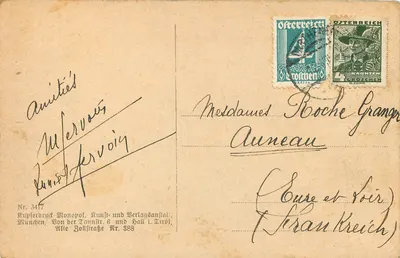 Österreich
4
Groschen
ÖSTERREICH
KÄRNTEN
GROSCHEN
Amitiés
M Servoin
Servoin
Mesdames Roche Granger
Auneau
(Eure et Loir)
(Frankreich)
Nr. 3417
Kupferdruck Monopol, Kunst- und Verlagsanstal.
München, Von der Tannstr. 6 und Hall i. Tirol,
Alte Zollstraße Nr. 388